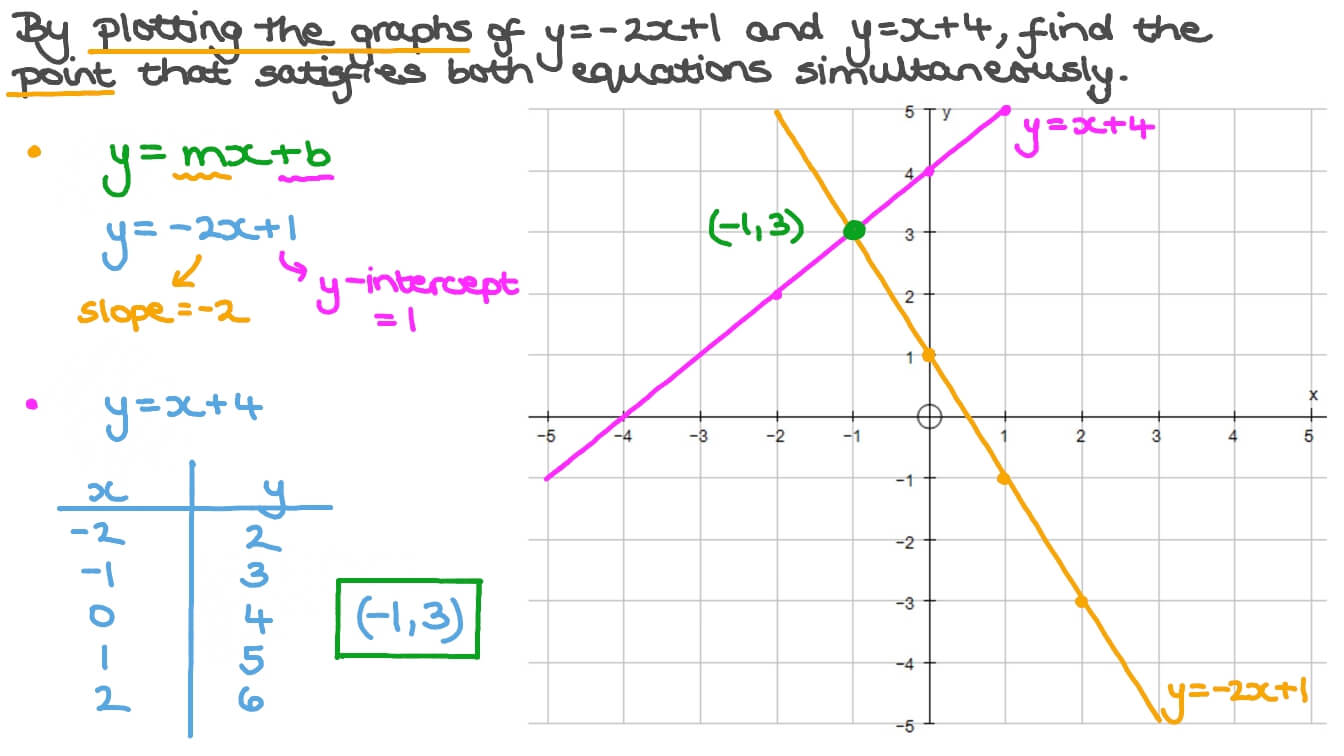 By plotting the graphs of y=-2x+1 and y=x+4, find the
point that satisfies both equations simultaneously.
• y=mx+b
y=-2x+1
slope=-2
y-intercept
=1
• y=x+4
x y
-2 2
-1 3
0 4
1 5
2 6
(-1,3)
y
5
y=x+4
4
(-1,3)
3
2
1
x
-5 -4 -3 -2 -1 1 2 3 4 5
-1
-2
-3
-4
y=-2x+1
-5